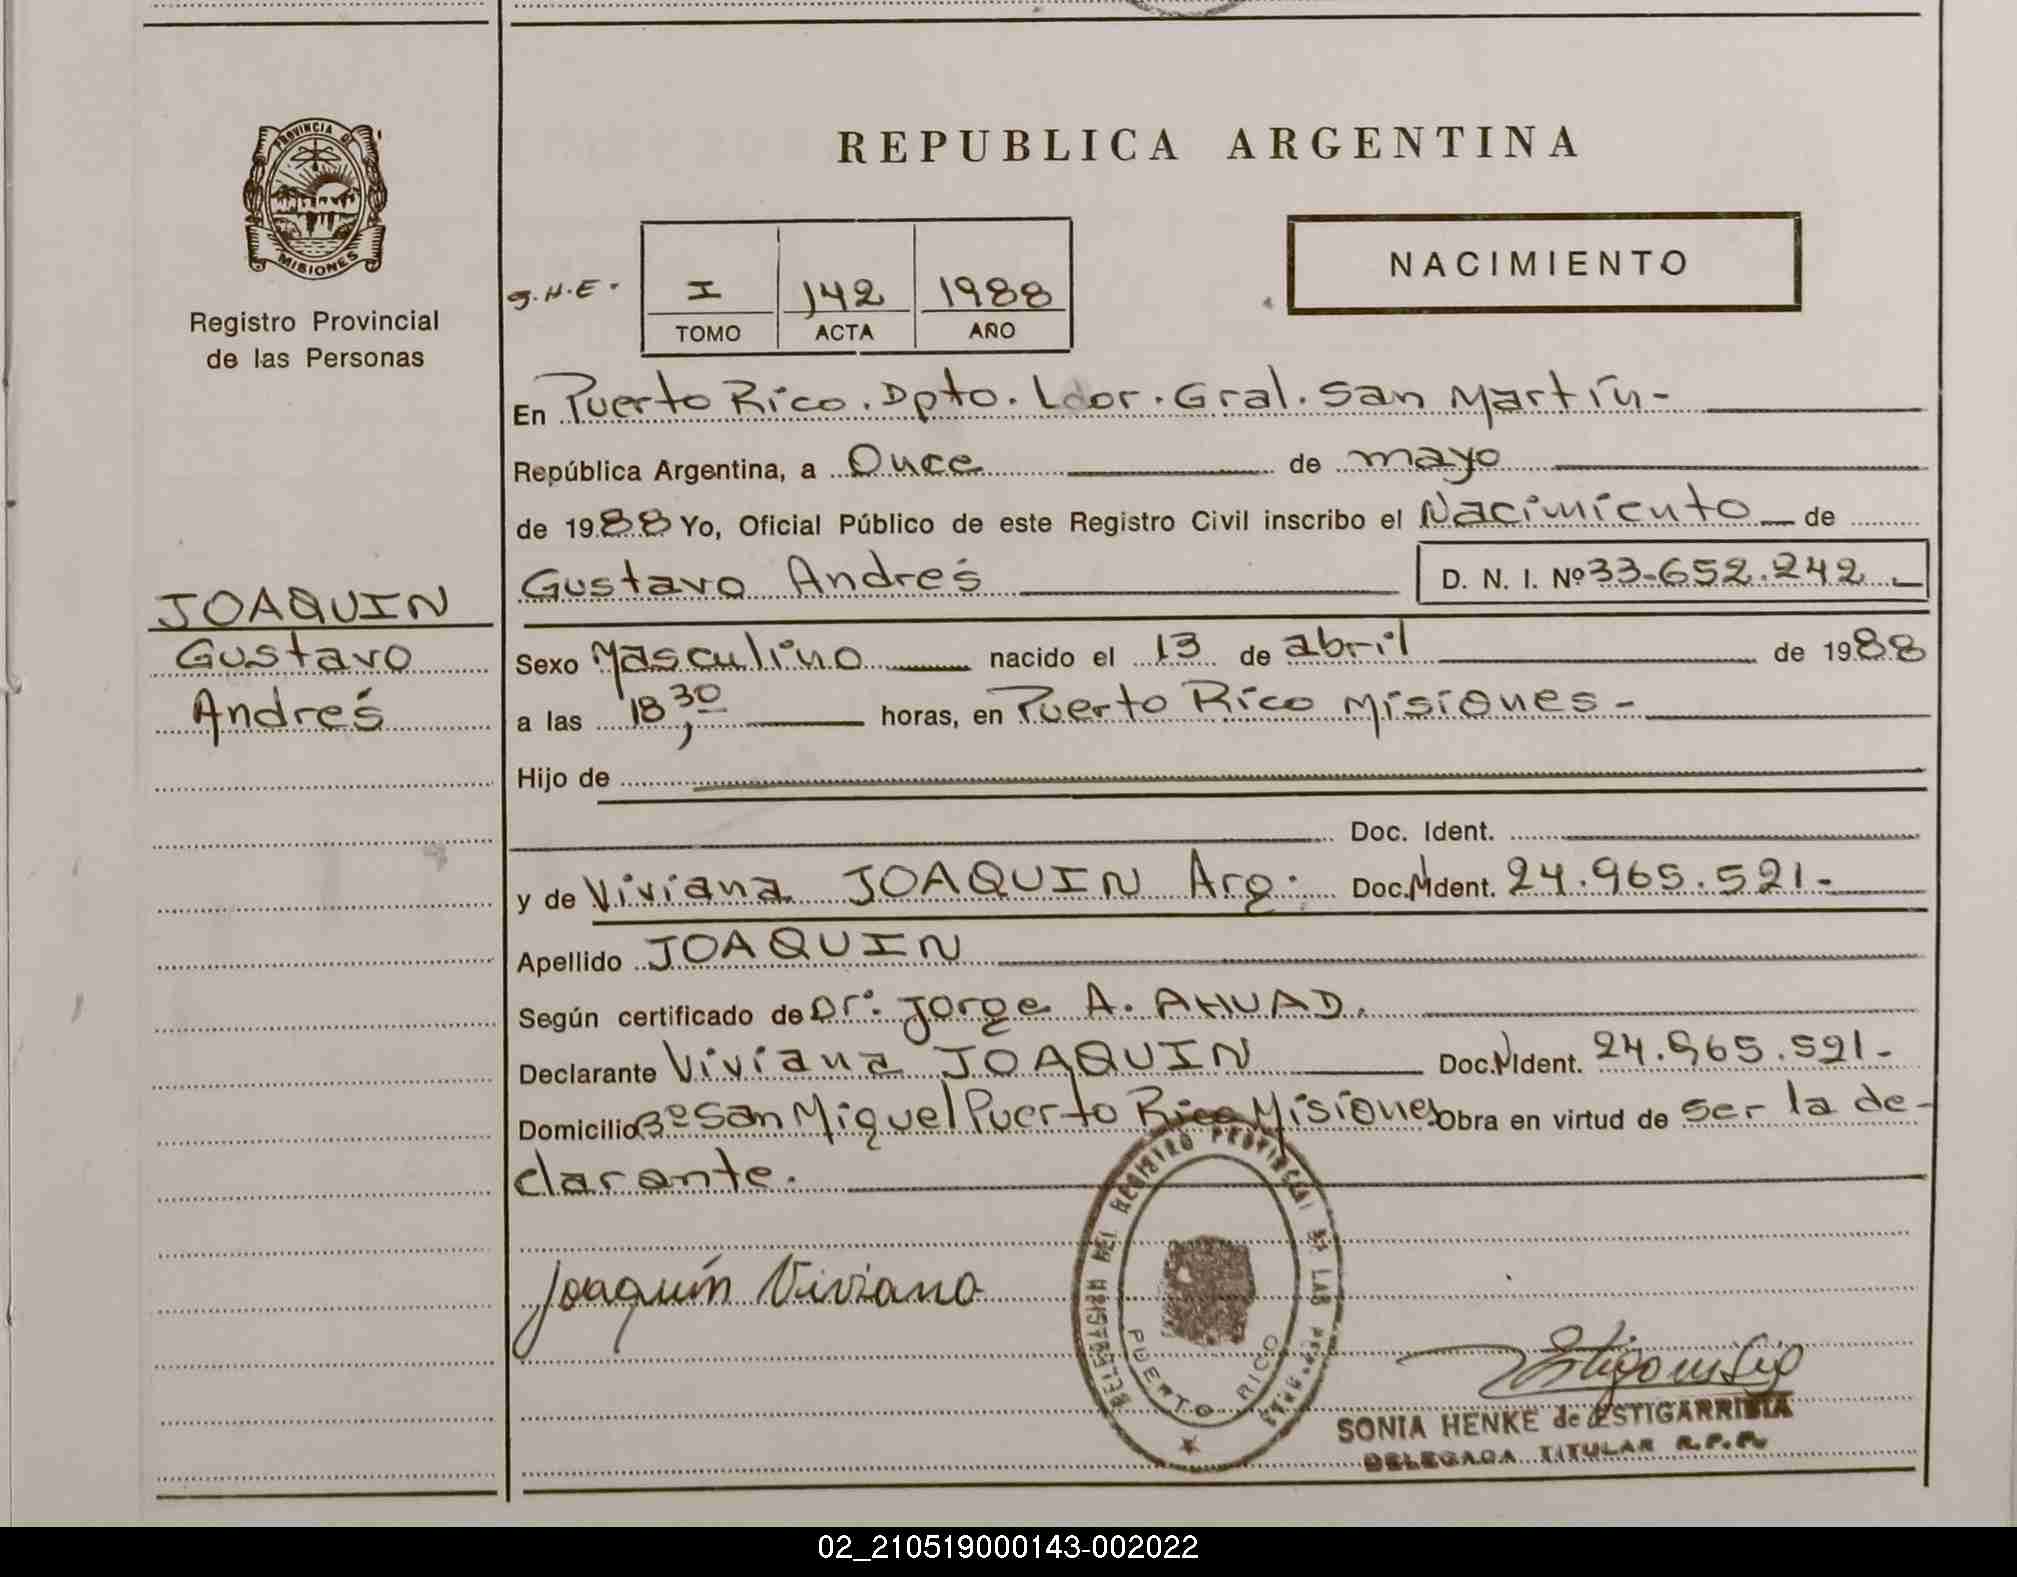 PROVINCIA DE
MISIONES
Registro Provincial
de las Personas
JOAQUIN
Gustavo
Andrés
REPUBLICA ARGENTINA
NACIMIENTO
S.H.E.
I 142 1988
TOMO ACTA AÑO
En Puerto Rico. Dpto. Ldor. Gral. San Martín-
República Argentina, a Once de mayo
de 1988 Yo, Oficial Público de este Registro Civil inscribo el Nacimiento de
Gustavo Andrés D. N. I. Nº 33-652.242
Sexo Masculino nacido el 13 de abril de 1988
a las 18,30 horas, en Puerto Rico Misiones-
Hijo de
Doc. Ident.
y de Viviana JOAQUIN Arg. Doc. Ident. 24.965.521.-
Apellido JOAQUIN
Según certificado de Dr. Jorge A. AHUAD.
Declarante Viviana JOAQUIN Doc. Ident. 24.965.521-
Domicilio Bº San Miguel Puerto Rico Misiones Obra en virtud de ser la de-
clarante.
Joaquín Viviana
REGISTRO PROVINCIAL DE LAS PERSONAS
PUERTO RICO
SONIA HENKE de ESTIGARRIBIA
DELEGADA TITULAR R.P.P.
02_210519000143-002022